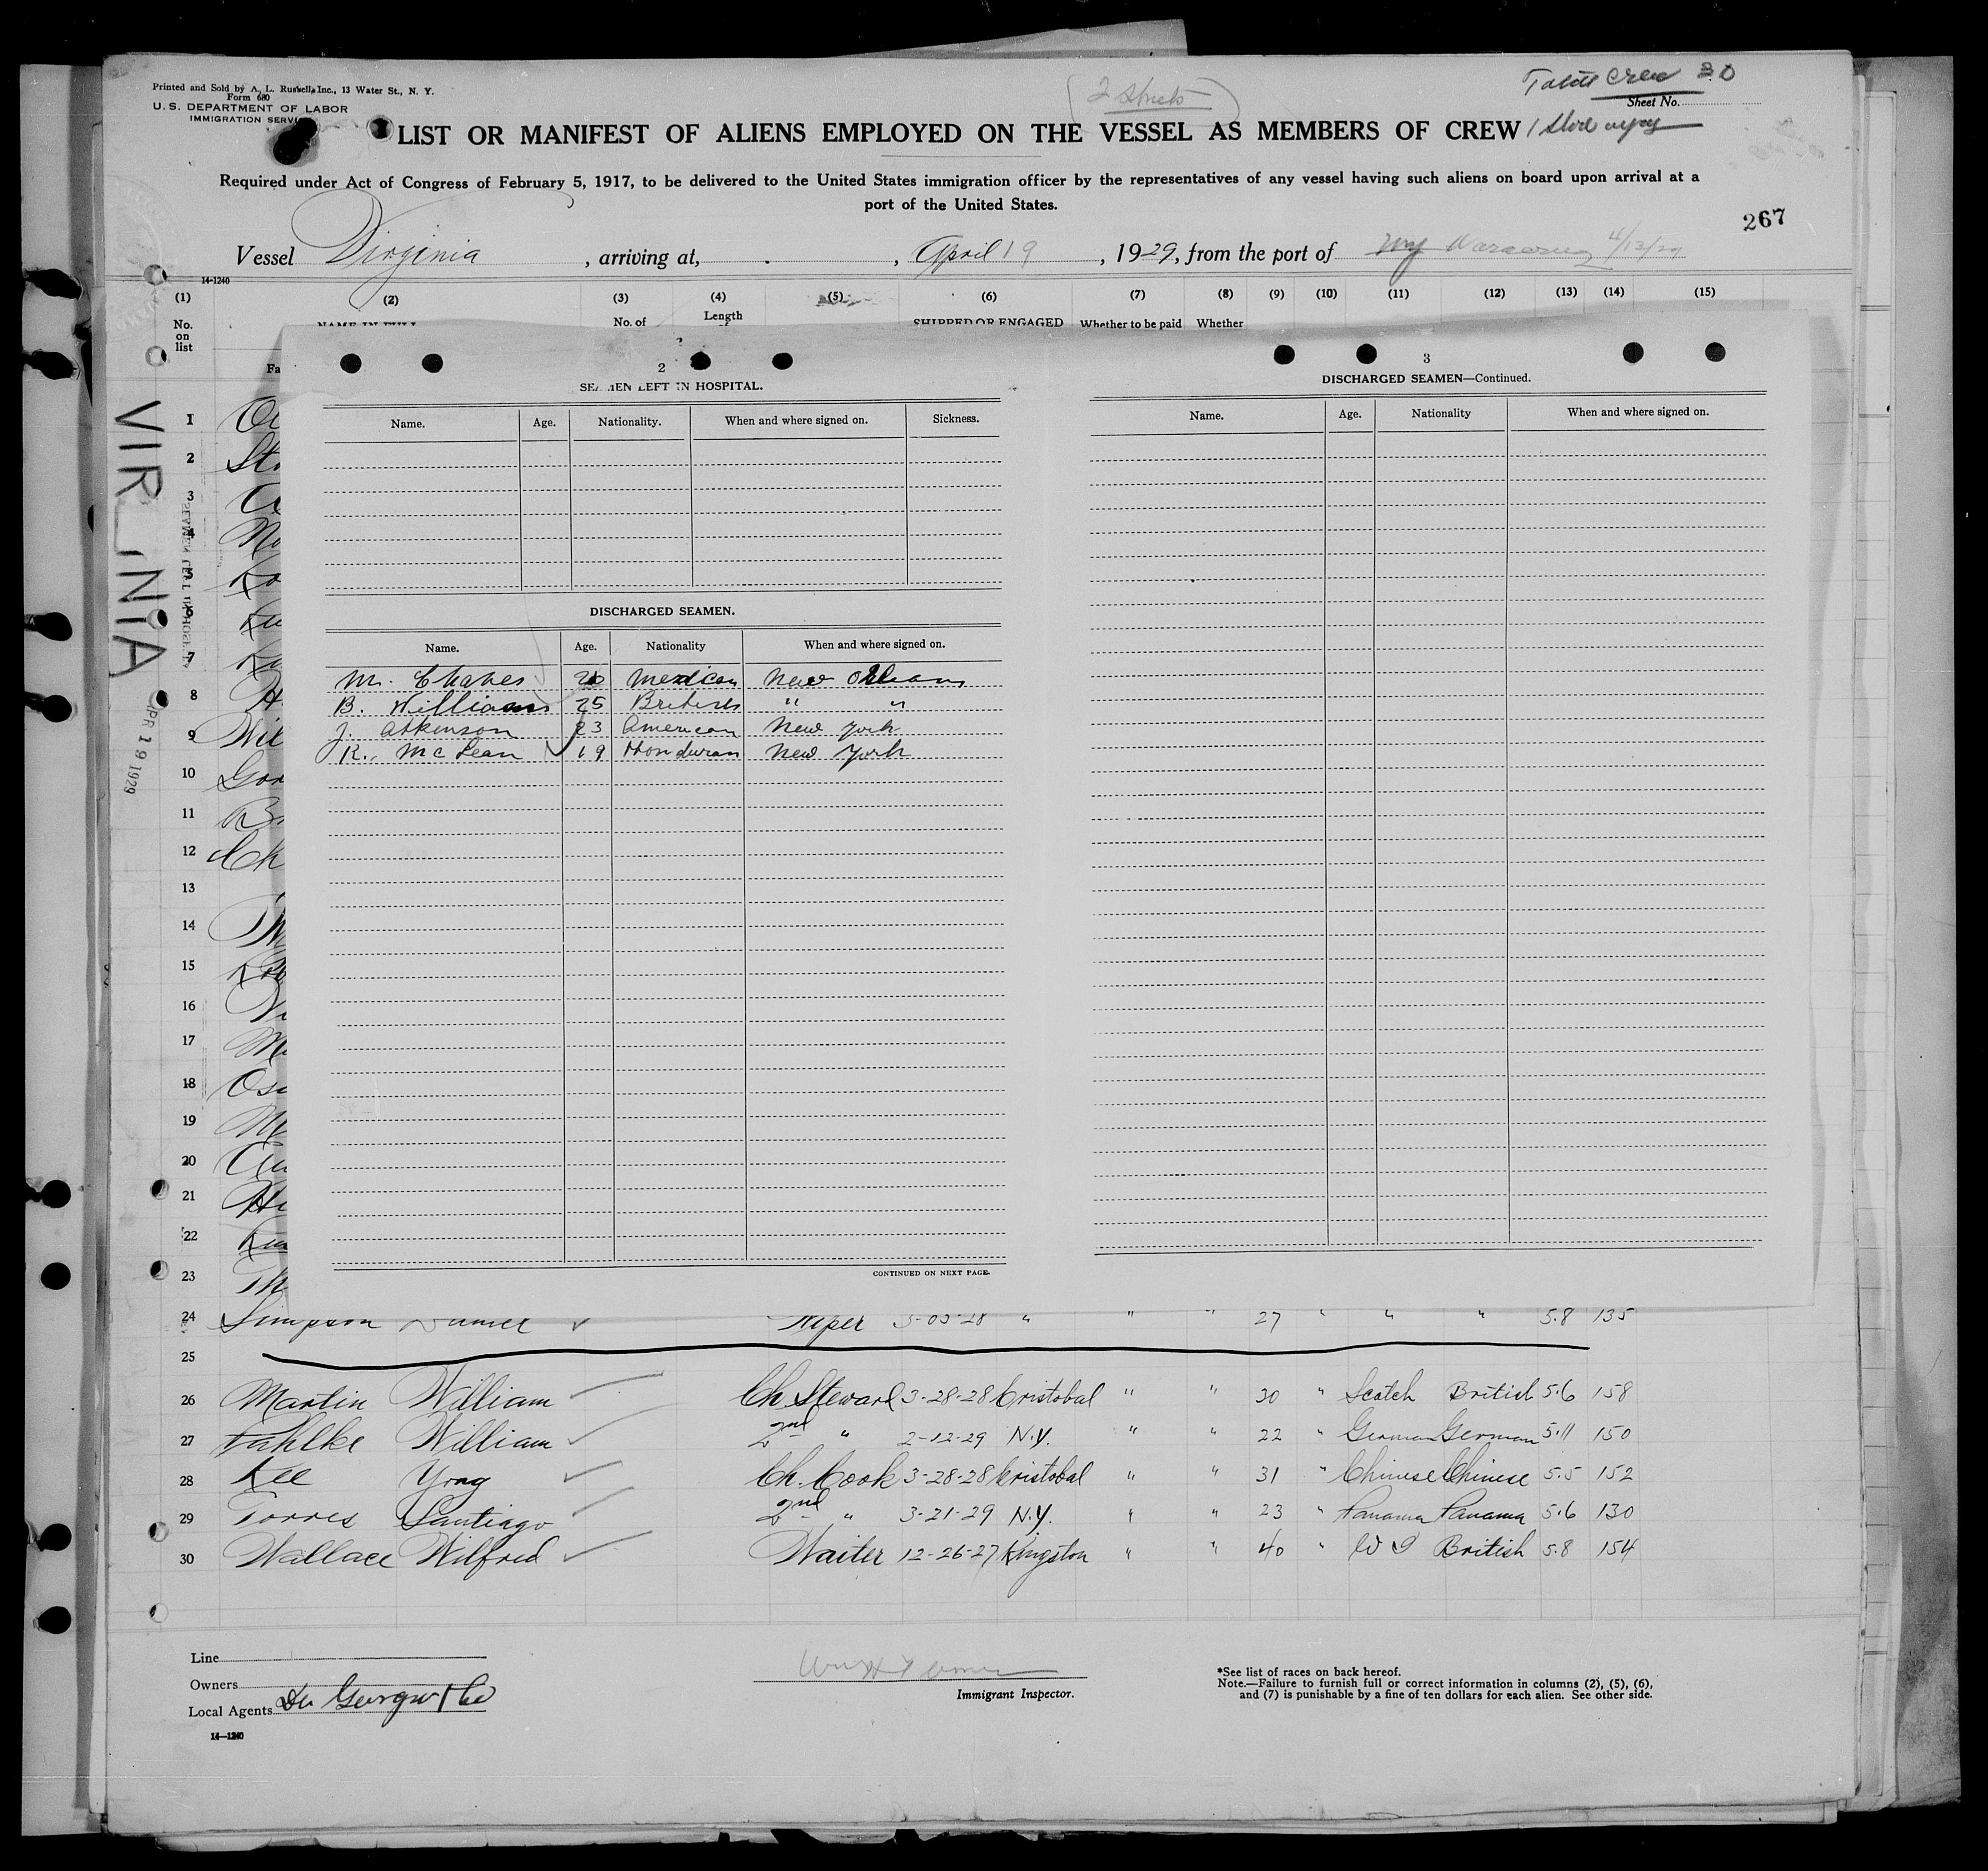 Printed and Sold by A. L. Russell, Inc., 13 Water St., N. Y.
Form 680
U. S. DEPARTMENT OF LABOR
IMMIGRATION SERVICE
(2 sheets)
Total Crew 30
Sheet No.
LIST OR MANIFEST OF ALIENS EMPLOYED ON THE VESSEL AS MEMBERS OF CREW
Required under Act of Congress of February 5, 1917, to be delivered to the United States immigration officer by the representatives of any vessel having such aliens on board upon arrival at a
port of the United States.
267
Vessel Virginia, arriving at, , April 19, 1929, from the port of 4/13/29
14-1240
(1) (2) (3) (4) (5) (6) (7) (8) (9) (10) (11) (12) (13) (14) (15)
No. on list
NAME IN FULL
No. of
Length
SHIPPED OR ENGAGED
Whether to be paid
Whether
Fa
VIR_NIA
APR 19 1929
2
SEAMEN LEFT IN HOSPITAL.
Name. Age. Nationality. When and where signed on. Sickness.
DISCHARGED SEAMEN.
Name. Age. Nationality When and where signed on.
M. Chaves 20 Mexican New Orleans
B. Williams 25 British " "
J. Atkinson 23 American New York
R. McLean 19 Honduran New York
CONTINUED ON NEXT PAGE.
3
DISCHARGED SEAMEN—Continued.
Name. Age. Nationality When and where signed on.
1
2 Sto
3
4
5
6
7
8
9 Wil
10
11
12 Ch
13
14
15
16
17
18
19
20
21
22
23
24 Simpson " " " 27 " " " 5.8 135
25
26 Martin William Ch. Steward 3-28-28 Cristobal " " 30 " Scotch British 5.6 158
27 Fahlke William 2nd " 2-12-29 N.Y. " " 22 " German German 5.11 150
28 Kee Yong Ch. Cook 3-28-28 Cristobal " " 31 " Chinese Chinese 5.5 152
29 Torres Santiago 2nd " 3-21-29 N.Y. " " 23 " Panama Panama 5.6 130
30 Wallace Wilfred Waiter 12-26-27 Kingston " " 40 " W I British 5.8 154
Line
Owners
Local Agents
14—1240
Immigrant Inspector.
*See list of races on back hereof.
Note.—Failure to furnish full or correct information in columns (2), (5), (6),
and (7) is punishable by a fine of ten dollars for each alien. See other side.